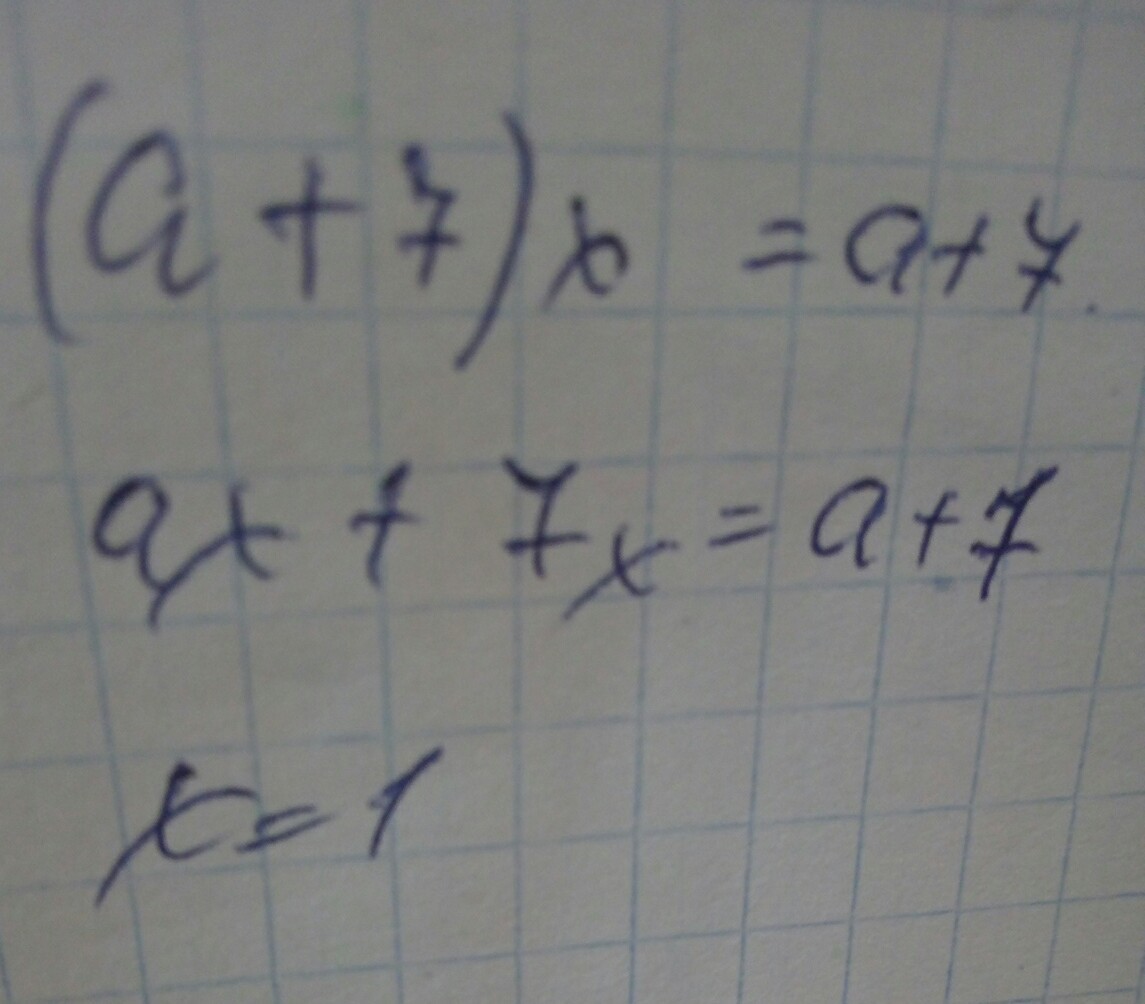 (a + 7)x = a + 7.
ax + 7x = a + 7
x = 1